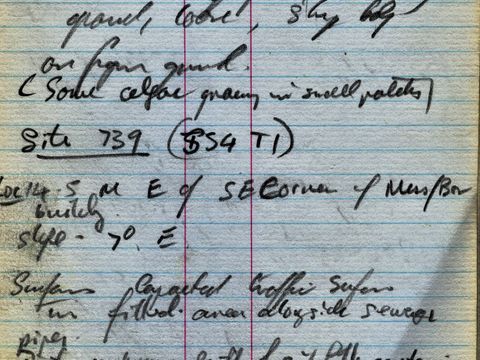 gravel,
on from ground.
(Some algae growing in small patches)
Site 739 (SS4 T1)
Loc 14.5 M E of SE Corner of Mess/Bar
building.
Slope - 7°. E
Surface Compacted traffic surface
in filled area alongside sewer
pipes.